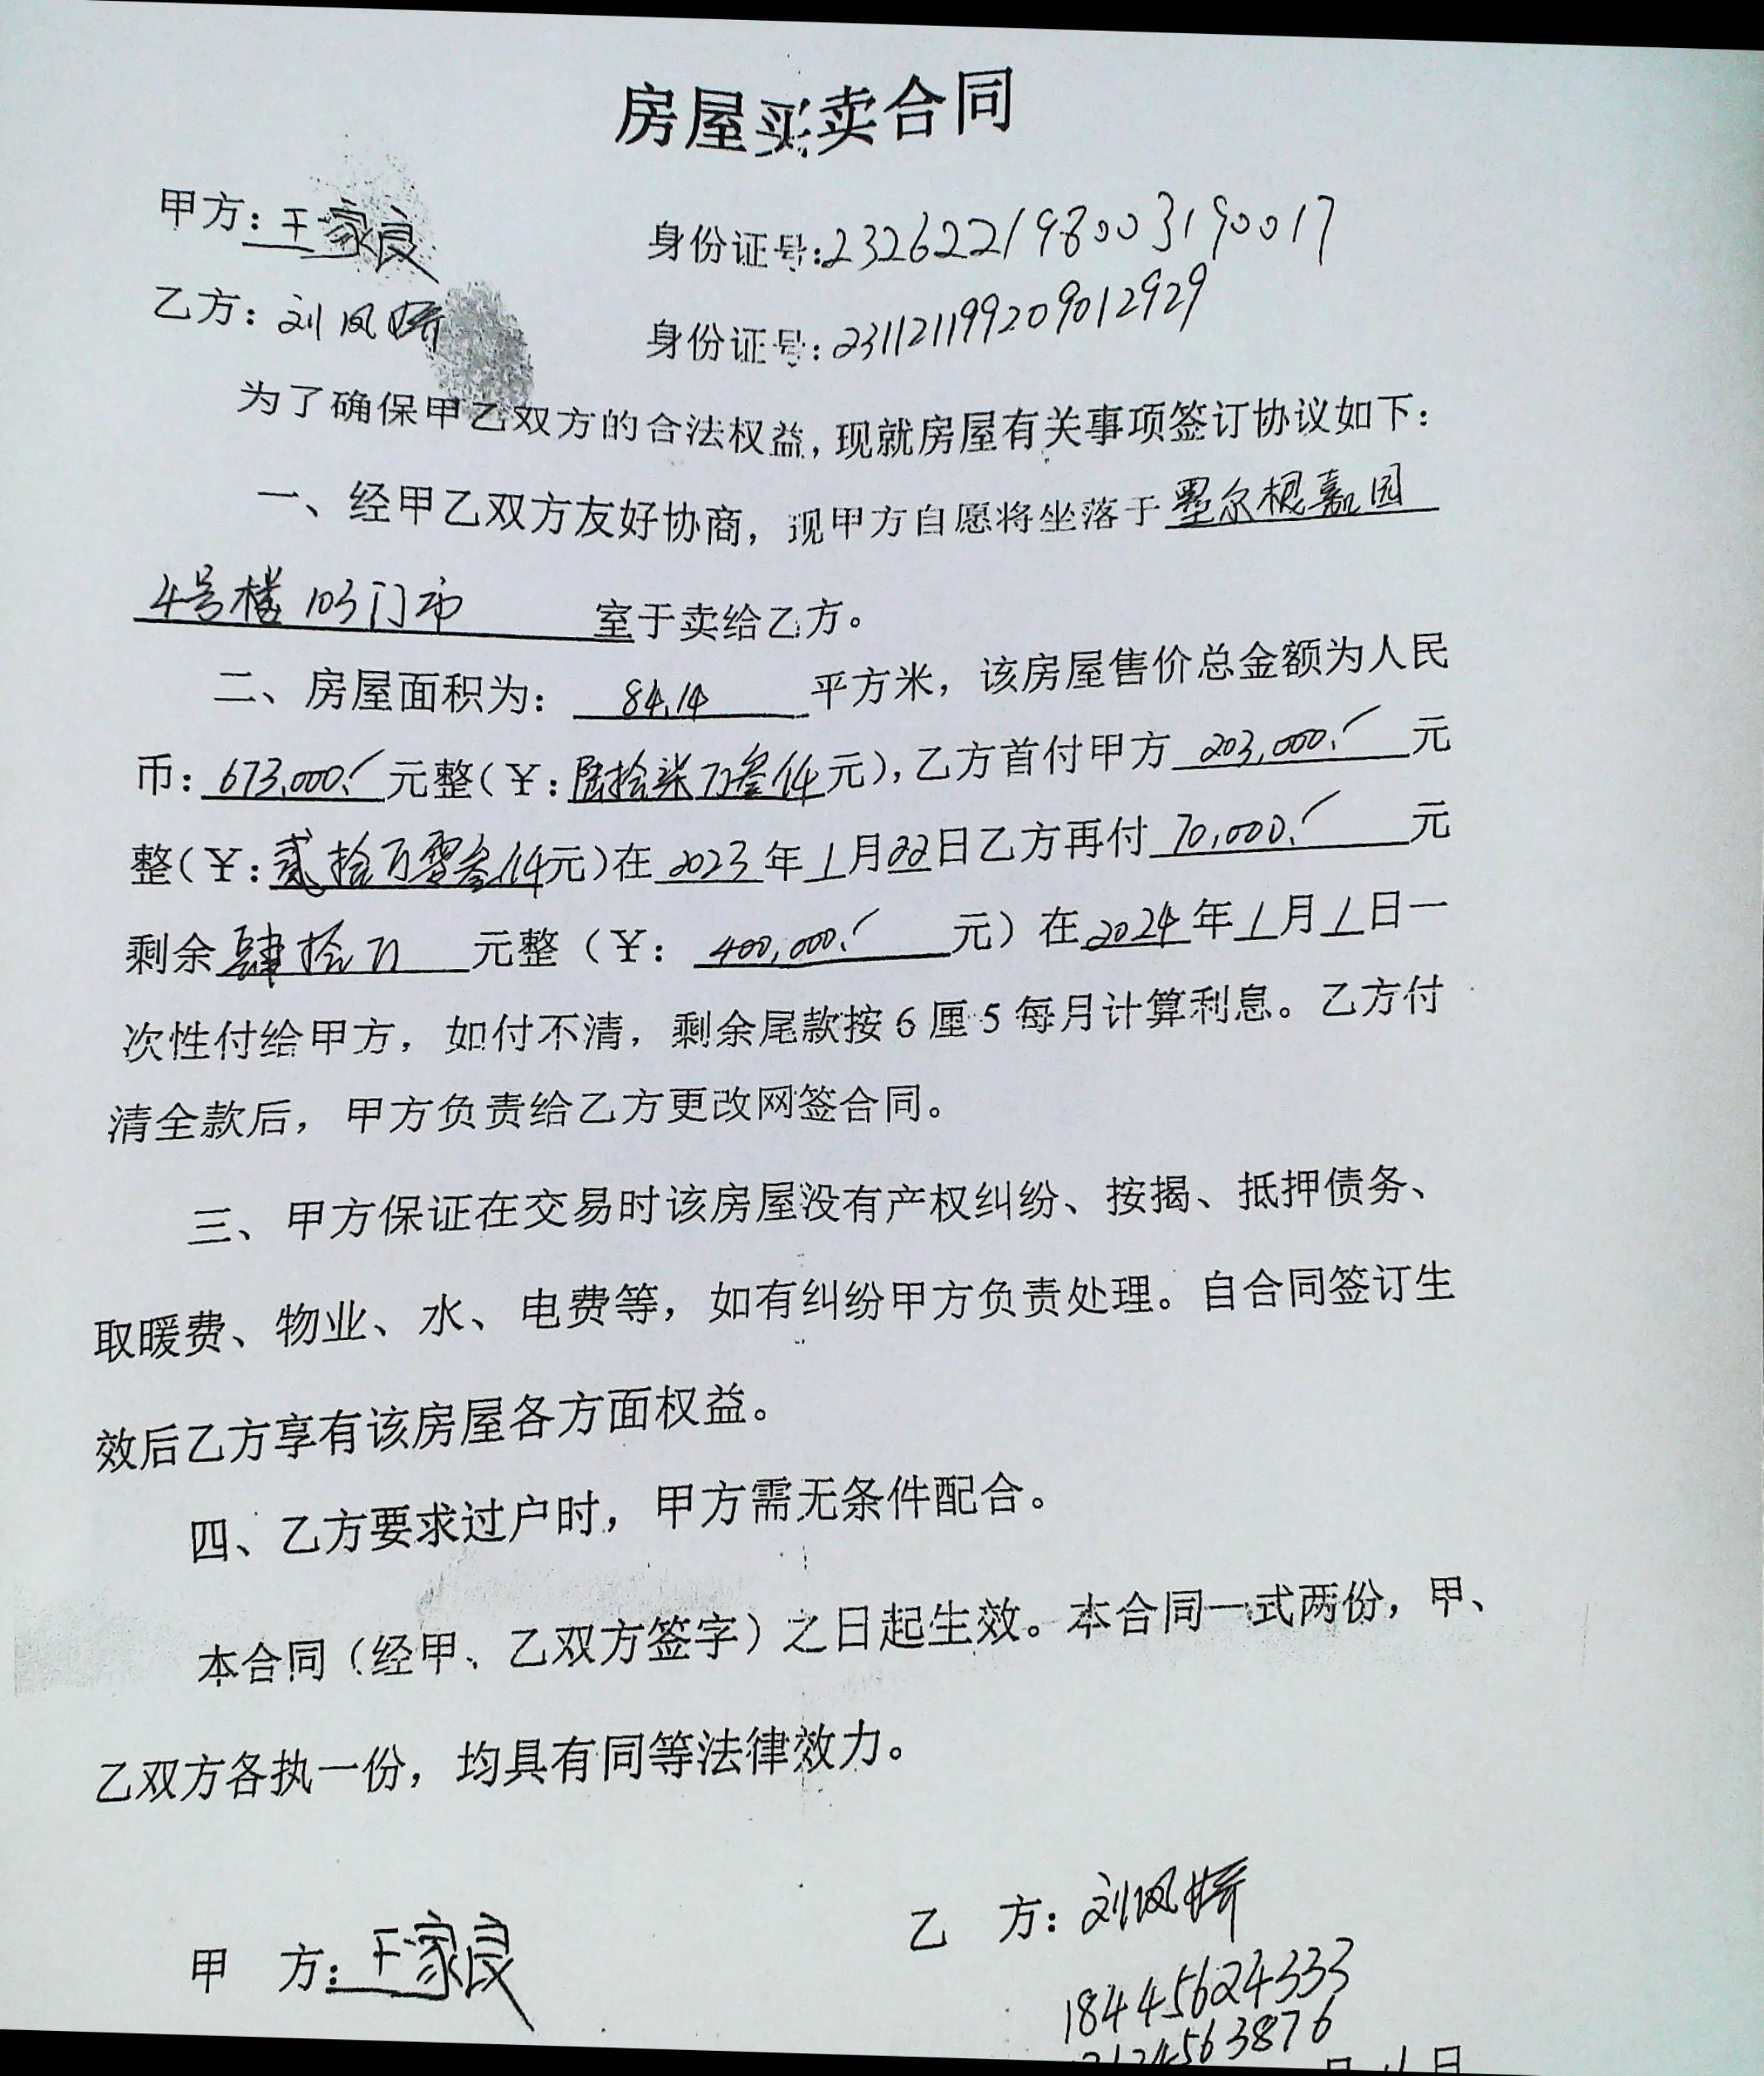 房屋买卖合同
甲方：王家良 身份证号：232622198003190017
乙方：刘凤娇 身份证号：231121199209012929
为了确保甲乙双方的合法权益，现就房屋有关事项签订协议如下：
一、经甲乙双方友好协商，现甲方自愿将坐落于墨尔根嘉园
4号楼103门市 室于卖给乙方。
二、房屋面积为：84.14平方米，该房屋售价总金额为人民
币：673,000.元整（￥：陆拾柒万叁仟元），乙方首付甲方 203,000. 元
整（￥：贰拾万零叁仟元）在2023年1月22日乙方再付 70,000. 元
剩余肆拾万元整（￥：400,000. 元）在2024年1月1日一
次性付给甲方，如付不清，剩余尾款按6厘5每月计算利息。乙方付
清全款后，甲方负责给乙方更改网签合同。
三、甲方保证在交易时该房屋没有产权纠纷、按揭、抵押债务、
取暖费、物业、水、电费等，如有纠纷甲方负责处理。自合同签订生
效后乙方享有该房屋各方面权益。
四、乙方要求过户时，甲方需无条件配合。
本合同（经甲、乙双方签字）之日起生效。本合同一式两份，甲、
乙双方各执一份，均具有同等法律效力。
甲 方：王家良
乙 方：刘凤娇
18445624333
4563876
月 1 日